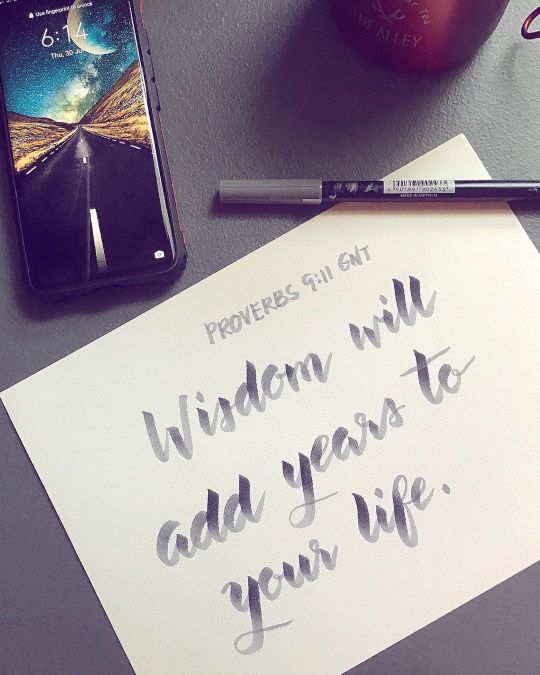 Use fingerprint to unlock
6:14
THE ALLEY
4 901991 902433
MADE IN VIETNAM
PROVERBS 9:11 GNT
Wisdom will
add years to
your life.